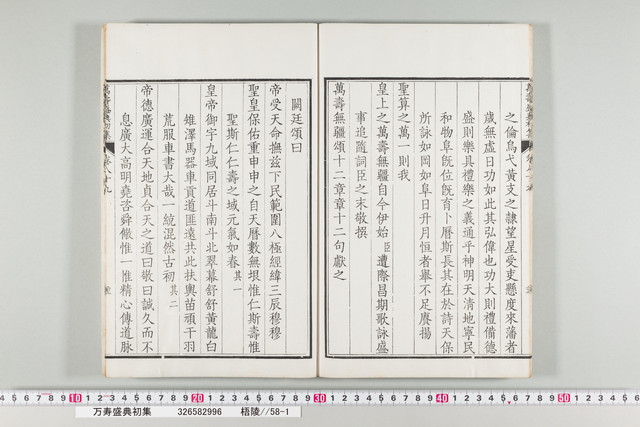 之倫烏弋黃支之隷望星受吏懸度來藩者
歲無虛日功如此其弘偉也功大則禮備德
盛則樂具禮樂之義通乎神明天清地寧民
和物阜旣位旣育卜曆斯長其在於詩天保
所詠如岡如阜日升月恒者舉不足賡揚
聖算之萬一則我
皇上之萬壽無疆自今伊始臣遭際昌期歌詠盛
事追隨詞臣之末敬撰
萬壽無疆頌十二章章十二句獻之
闕廷頌曰
帝受天命撫兹下民範圍八極經緯三辰穆穆
聖皇保佑重申申之自天曆數無垠惟仁斯壽惟
聖斯仁仁壽之域元氣如春其一
皇帝御宇九域同居斗南斗北翠幕舒舒黃龍白
雉澤馬器車貢道匪遠共此扶輿苗頑干羽
荒服車書大哉一統混然古初其二
帝德廣運合天地貞合天之道曰敬曰誠久而不
息廣大高明堯咨舜儆惟一惟精心傳道脉
萬壽盛典初集
10 20 30 40 50
万寿盛典初集 326582996 梧陵//58-1